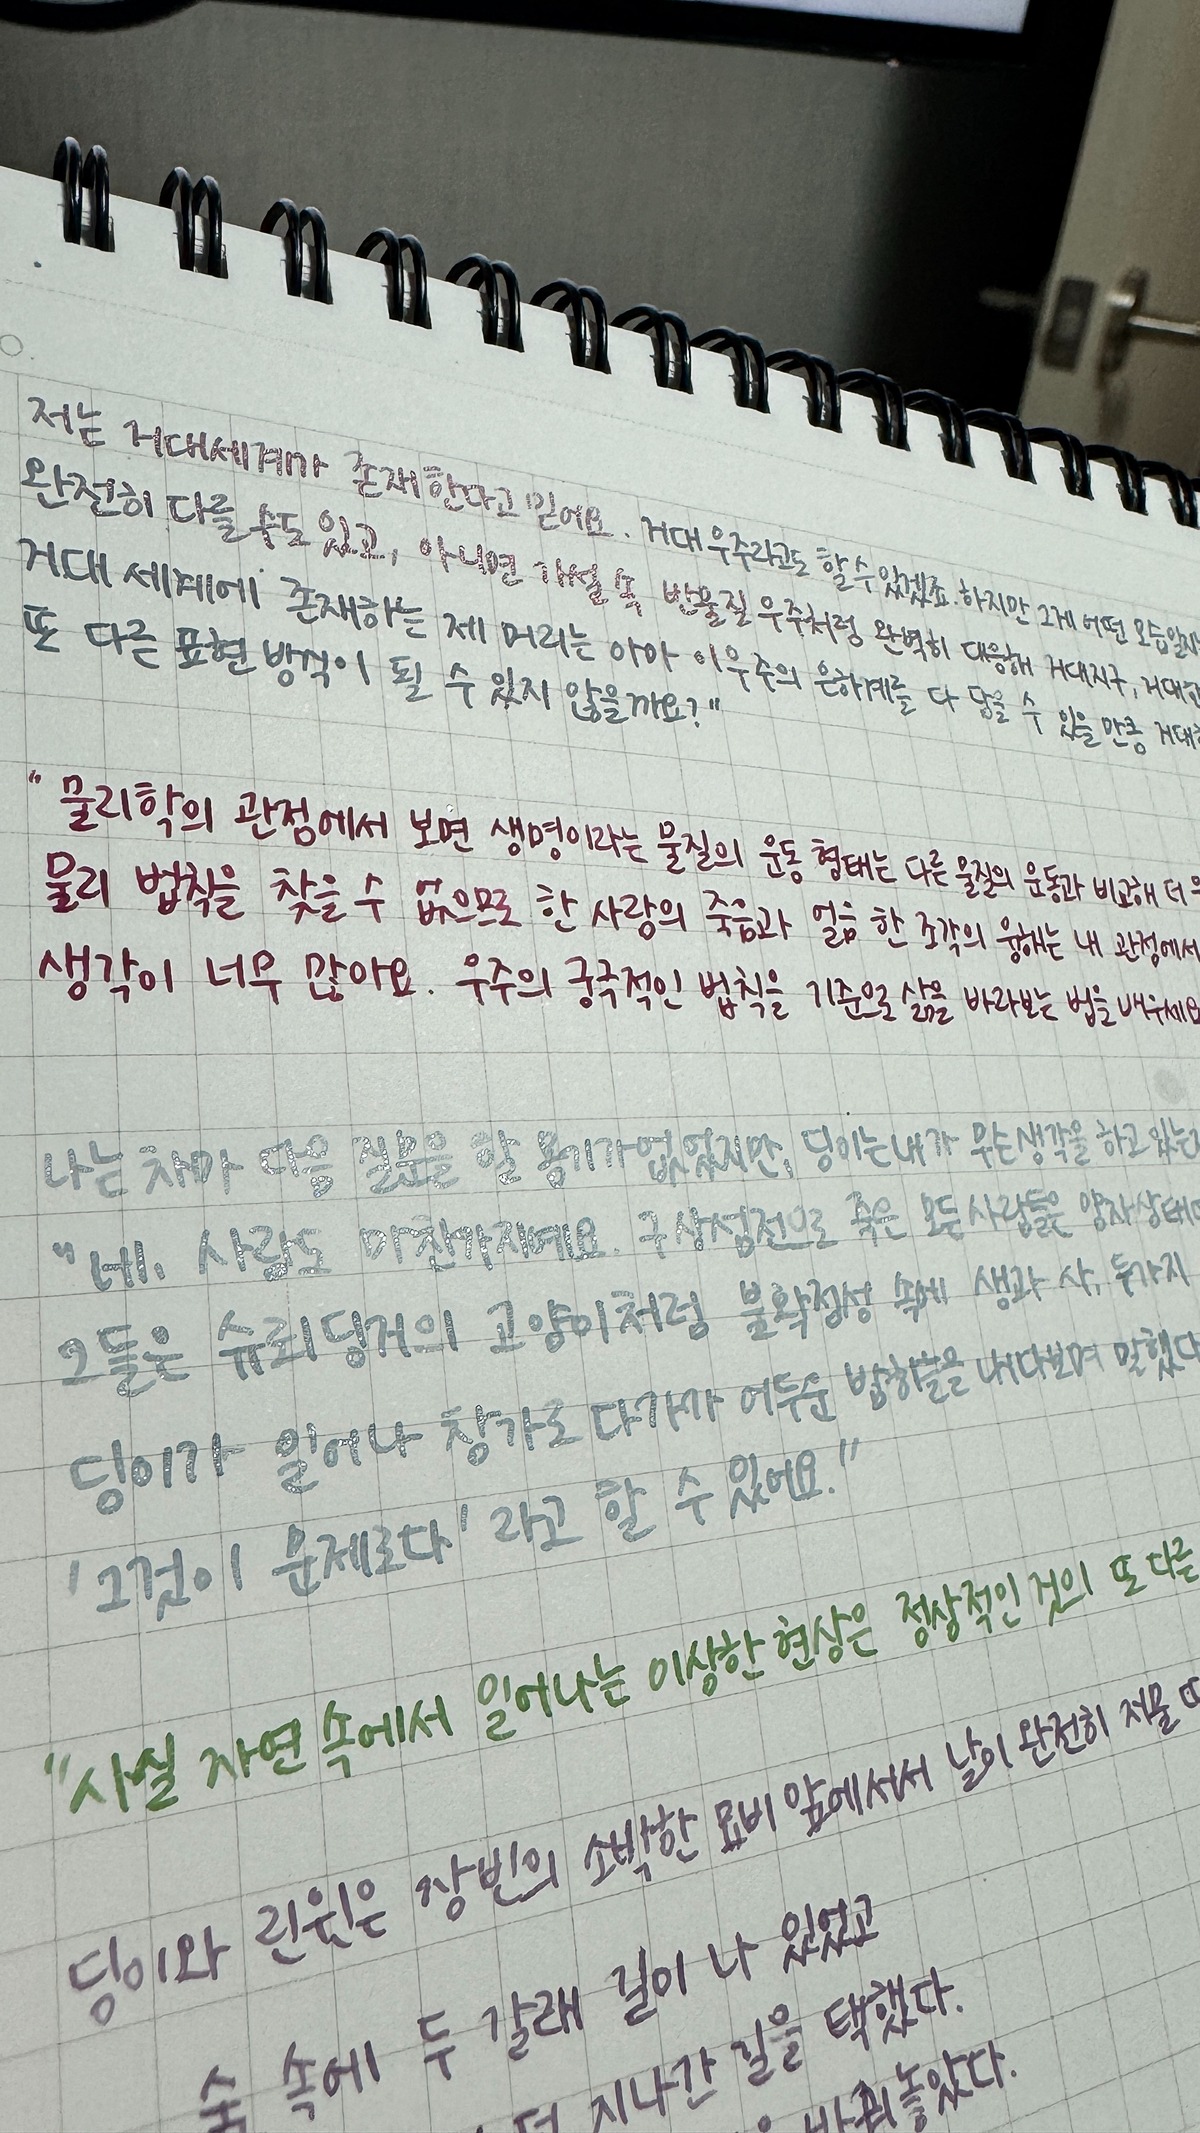 저는 거대세계가 존재한다고 믿어요. 거대 우주라고도 할 수 있겠죠. 하지만 그게 어떤 모습일지
완전히 다를 수도 있고, 아니면 가설 속 반물질 우주처럼 완벽히 대응해 거대지구, 거대
거대 세계에 존재하는 제 머리는 아마 이 우주의 은하계를 다 담을 수 있을 만큼 거대
또 다른 표현 방식이 될 수 있지 않을까요?"
"물리학의 관점에서 보면 생명이라는 물질의 운동 형태는 다른 물질의 운동과 비교해 더
물리 법칙을 찾을 수 없으므로 한 사람의 죽음과 얼음 한 조각의 융해는 내 관점에서
생각이 너무 많아요. 우주의 궁극적인 법칙을 기준으로 삶을 바라보는 법을 배우세요
나는 차마 다음 질문을 할 용기가 없었지만, 딩이는 내가 무슨 생각을 하고 있는
"네, 사람도 마찬가지예요. 구상섬전으로 죽은 모든 사람들은 양자상태
그들은 슈뢰딩거의 고양이처럼 불확정성 속에 생과 사, 두가지
딩이가 일어나 창가로 다가가 어두운 밤하늘을 내다보며 말했다
'그것이 문제로다' 라고 할 수 있어요."
"사실 자연 속에서 일어나는 이상한 현상은 정상적인 것의 또 다른
딩이와 린윈은 장빈의 소박한 묘비 앞에 서서 날이 완전히 저물
숲 속에 두 갈래 길이 나 있었고
지나간 길을 택했다.
바꿔놓았다.